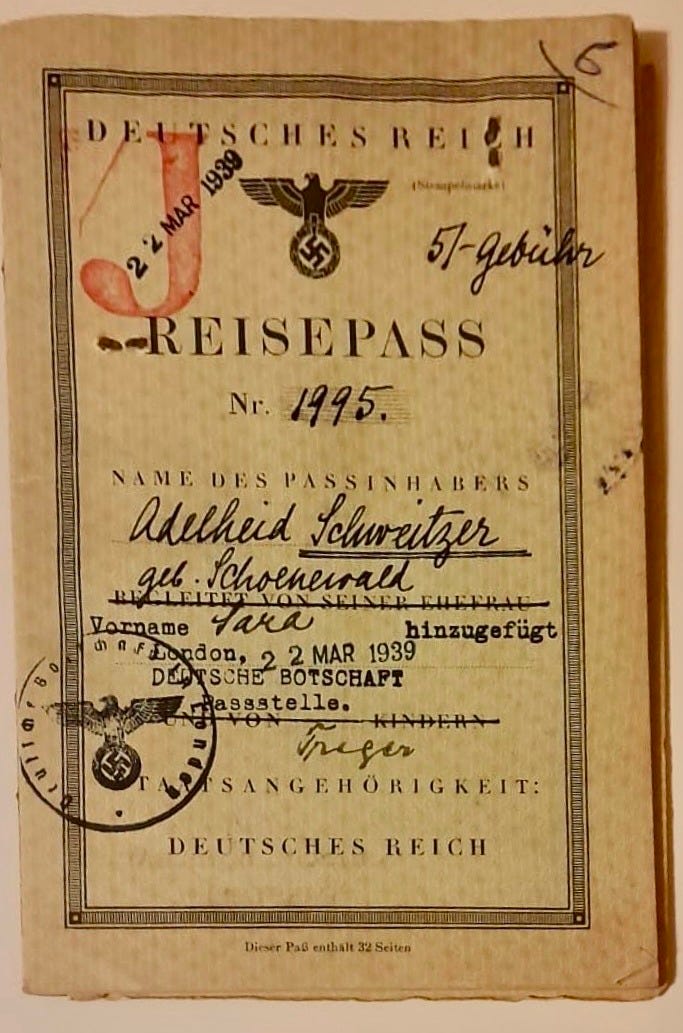 6
DEUTSCHES REICH
J
22 MAR 1939
(Stempelmarke)
5/- Gebühr
REISEPASS
Nr. 1995.
NAME DES PASSINHABERS
Adelheid Schweitzer
geb. Schoenewald
BEGLEITET VON SEINER EHEFRAU
Vorname Sara hinzugefügt
London, 22 MAR 1939
DEUTSCHE BOTSCHAFT
Passstelle.
UND VON KINDERN
STAATSANGEHÖRIGKEIT:
Deutsche Botschaft London
DEUTSCHES REICH
Dieser Paß enthält 32 Seiten